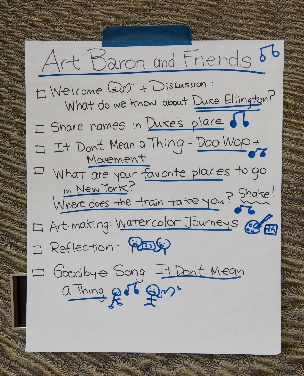 Art Baron and Friends
Welcome + Discussion:
What do we know about Duke Ellington?
Share names in Duke's place
It Don't Mean a Thing - Doo Wop +
Movement
What are your favorite places to go
in New York?
Where does the train take you? Shake!
Art-making: Watercolor Journeys
Reflection -
Goodbye Song It Don't Mean
a Thing